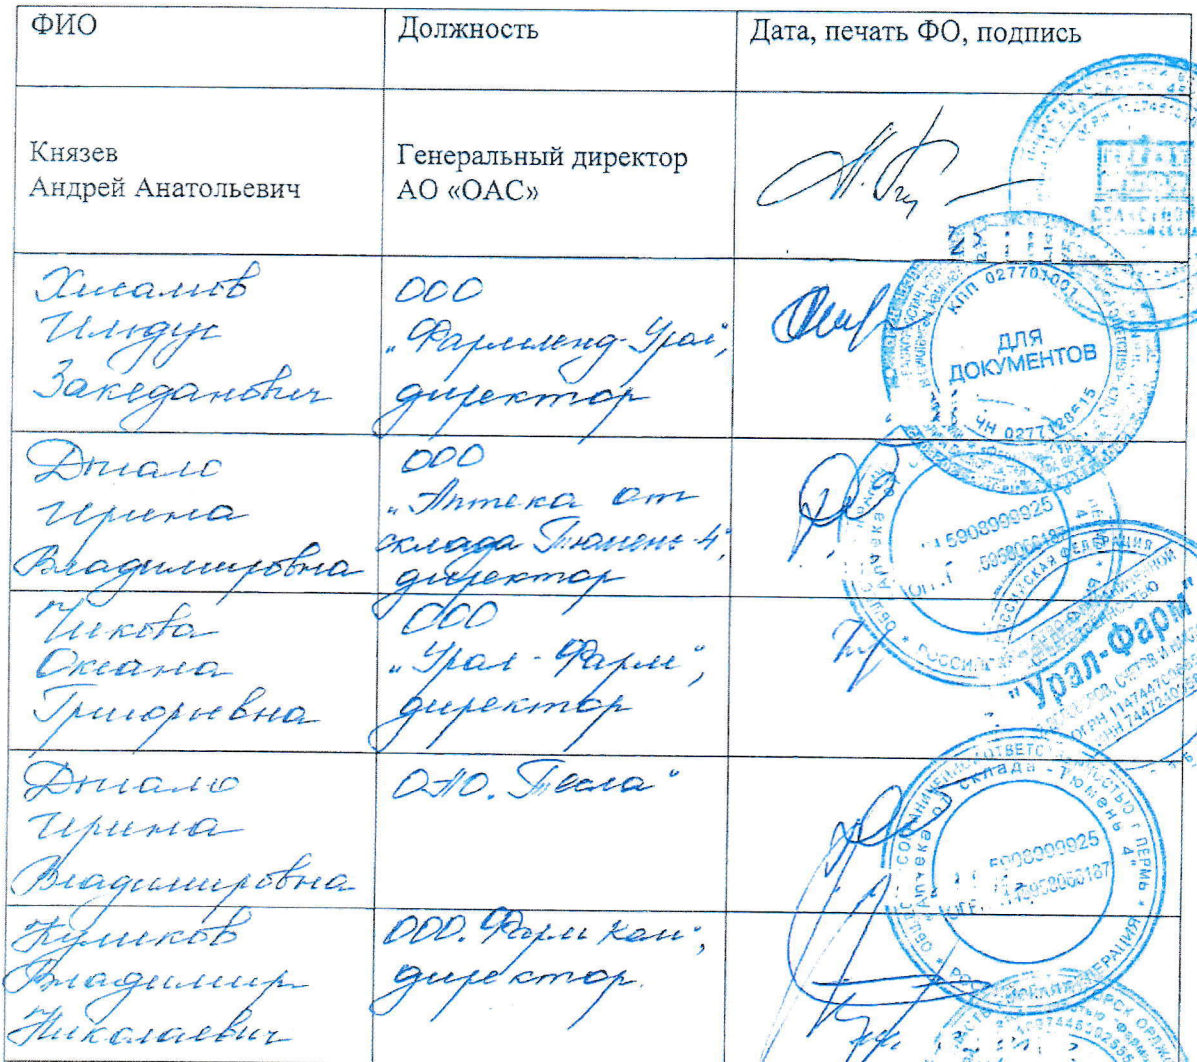 ФИО
Должность
Дата, печать ФО, подпись
Князев
Андрей Анатольевич
Генеральный директор
АО «ОАС»
Хисамов
Ильдус
Закеданович
ООО
„Фармленд-Урал",
директор
КПП 027701001
ДЛЯ
ДОКУМЕНТОВ
Ирина
Владимировна
ООО
„Аптека от
склада Тюмень-4",
директор
5908999925
РОССИЙСКАЯ ФЕДЕРАЦИЯ
Оксана
Григорьевна
ООО
„Урал-Фарм",
директор
"Урал-Фарм"
Ирина
Владимировна
ОАО „Тесла"
Аптека от склада - Тюмень 4"
5908999925
Куликов
Владимир
Николаевич
ООО „Фарм Кам",
директор.